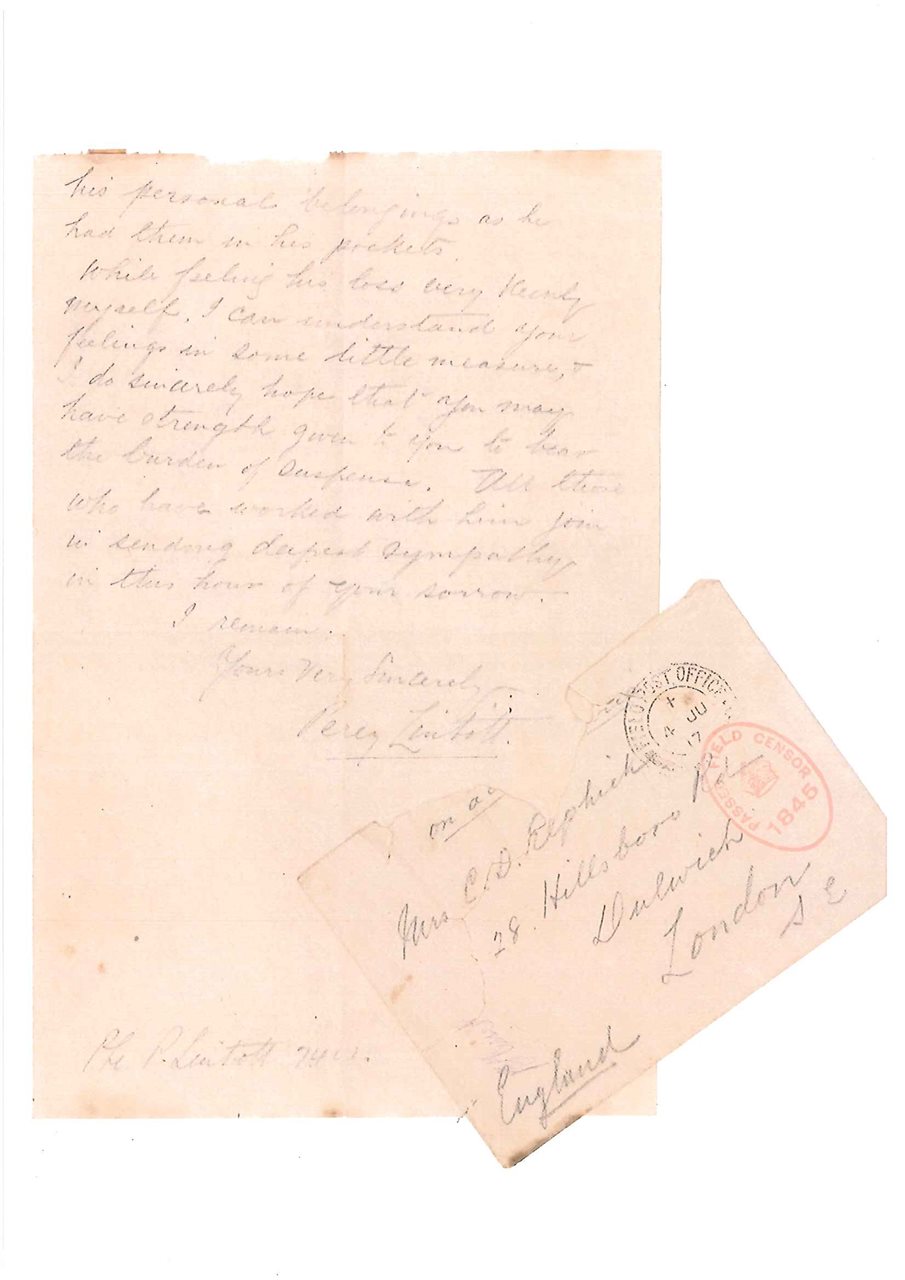 his personal belongings as he
had them in his pockets.
While feeling his loss very keenly
myself, I can understand your
feelings in some little measure, &
I do sincerely hope that you may
have strength given to you to bear
the burden of suspense. All those
who have worked with him join
in sending deepest sympathy
in this hour of your sorrow.
I remain.
Yours Very Sincerely
Percy Lintott.
Pte P. Lintott
FIELD POST OFFICE
4 JU
17
PASSED FIELD CENSOR
1845
on a
Mrs C. D.
28. Hillsboro Rd
Dulwich
London
S E
England